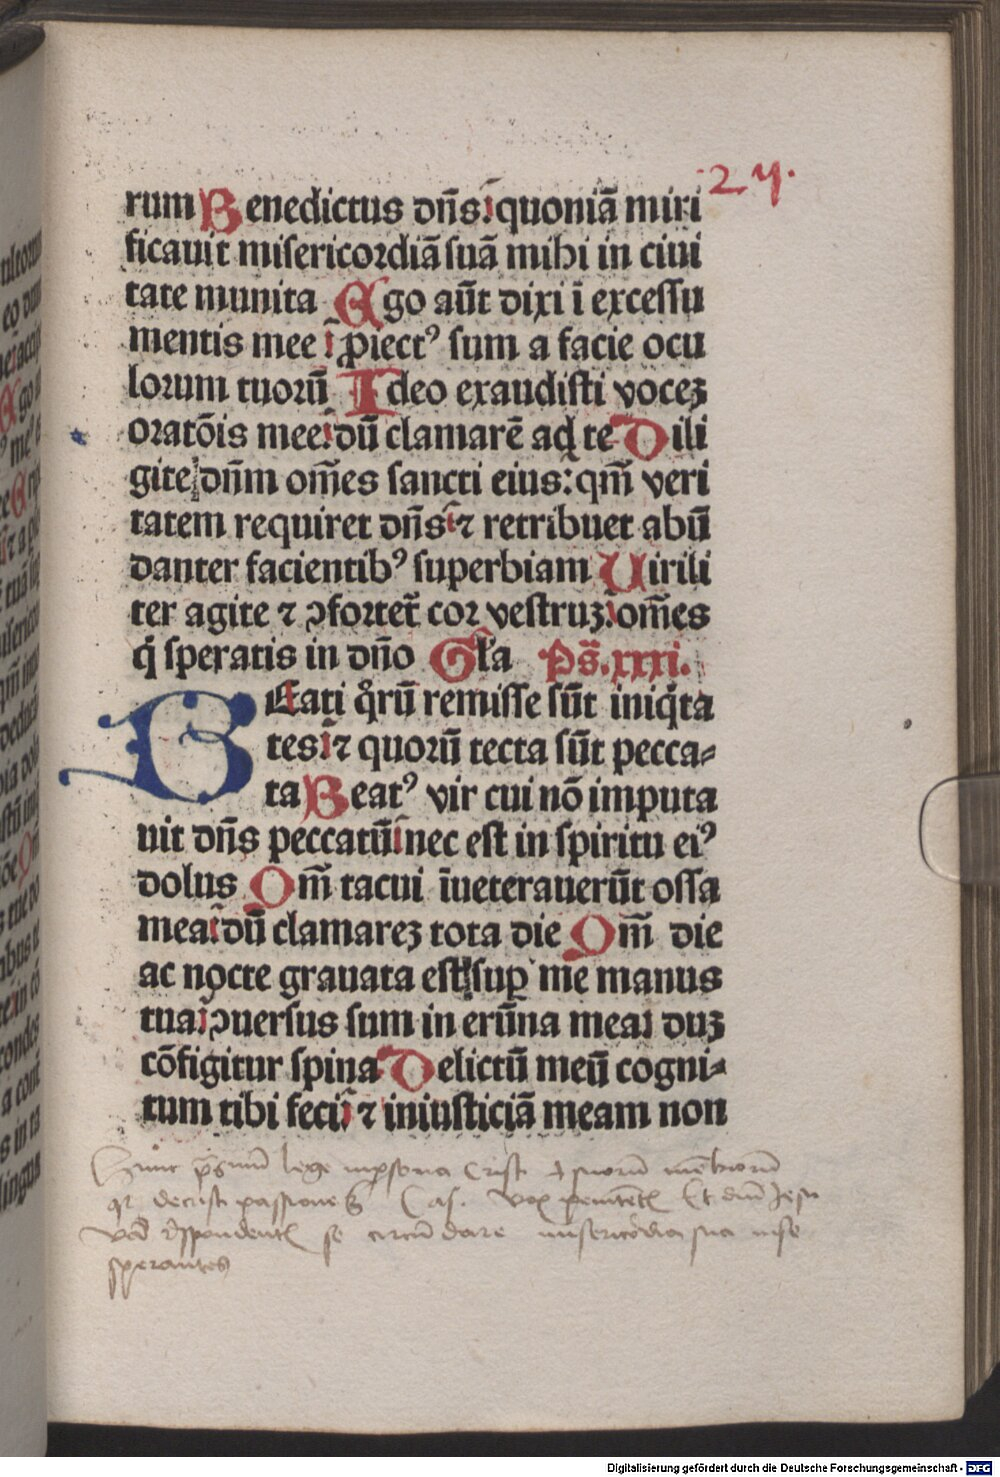 27.
rum Benedictus dn̄s: quoniā miri
ficauit misericordiā suā mihi in ciui
tate munita Ego aūt dixi ī excessu
mentis mee: ꝓiectꝰ sum a facie ocu
lorum tuorū Ideo exaudisti vocez
oratōis mee: dū clamarē ad te Dili
gite dn̄m om̄es sancti eius: qm̄ veri
tatem requiret dn̄s ⁊ retribuet abū
danter facientibꝰ superbiam Uirili
ter agite ⁊ ꝯfortet̄ cor vestruz: om̄es
q̇ speratis in dn̄o Gl̄a Ps̄. xxxi.
BEati qͦrū remisse sūt iniq̇ta
tes: ⁊ quorū tecta sūt pecca⸗
ta Beatꝰ vir cui nō imputa
uit dn̄s peccatū: nec est in spiritu eiꝰ
dolus Qm̄ tacui īueterauerūt ossa
mea: dū clamarez tota die Qm̄ die
ac nocte grauata est sup̄ me manus
tua: ꝯuersus sum in erūna mea: duz
cōfigitur spina Delictū meū cogni⸗
tum tibi feci: ⁊ iniusticiā meam non
Hunc psmū lege persona Cristi suorū mēbrorū
passione Cas. vox Et dīm Jesu
se circūdare misericordia sua
sperantes
Digitalisierung gefördert durch die Deutsche Forschungsgemeinschaft - DFG